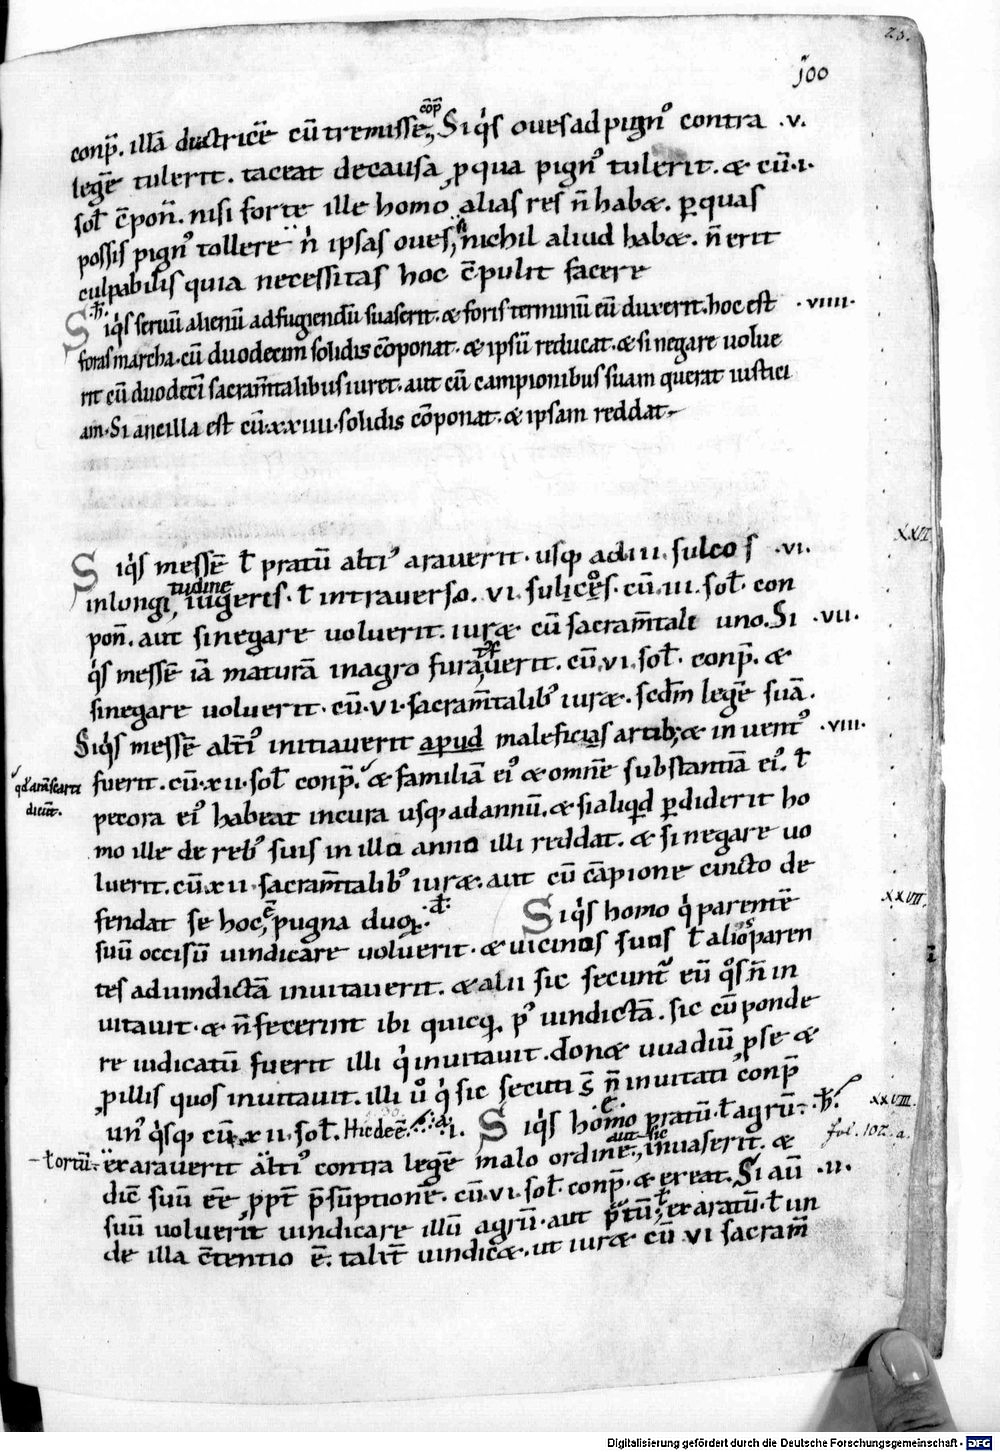 23.
100
conp̄. illā ductricē cū tremisse cōp̄ Si q̇s oues ad pign᷒ contra .v.
legē tulerit. taceat de causa ꝓ qua pign᷒ tulerit. & cū .i.
sol̄ c̄pon̄. nisi forte ille homo alias res n̄ habæ. ꝑ quas
possis pign᷒ tollere n̄ ipsas oues, nichil aliud habæ. n̄ erit
culpabilis quia necessitas hoc c̄pulit facere
Si q̇s seruū alienū ad fugiendū suaserit. & foris terminū eū duxerit. hoc est .viiii.
foras marcha. cū duodecim solidis cōponat. & ipsū reducat. & si negare uolue
rit cū duodecī sacram̄talibus iuret. aut cū campionibus suam querat iustici
am. Si ancilla est cū .xxiiii. solidis cōponat. & ipsam reddat
Si q̇s messē ł pratū alti᷒ arauerit. usq; ad .iii. sulcos .vi. XXVI
in longitudine iugeris. ł in trauerso. vi sulicos. cū .iii. sol̄. con
pon̄. aut si negare uoluerit. iuræ cū sacram̄tale uno. Si .vii.
q̇s messē iā maturā in agro furauerit. cū .vi. sol̄. conp̄. &
si negare uoluerit. cū .vi. sacram̄talib᷒ iuræ. scd̄m legē suā.
Si q̇s messē alti᷒ initiauerit apud maleficias artib; & inuent᷒ .viii.
qd̄ aranscarti
dicūt.
fuerit. cū .xii. sol̄ conp̄. & familiā ei᷒ & omnē substantiā ei᷒. ł
pecora ei᷒ habeat in cura usq; ad annū. & si aliqd̄ ꝑdiderit ho
mo ille de reb᷒ suis in illo anno illi reddat. & si negare uo
luerit. cū .xii. sacram̄talib᷒ iuræ. aut cū cāpione cincto de
fendat se hoc ē pugna duoꝝ. Si q̇s homo q̇ parentē XXVII.
suū occisū uindicare uoluerit. & uicinos suos ł alios paren
tes ad uindictā inuitauerit. & alii sic secunt᷒ eū q̊s n̄ in
uitauit. & n̄ fecerint ibi quicq̄. p᷒ uindictā. sic cū ponde
re iudicatū fuerit illi q̇ inuitauit. donæ uuadiū ꝓ se &
ꝓ illis quos inuitauit. illi ů q̇ sic secuti s̄ n̄ inuitati conp̄
un᷒ q̇sq; cū .xii. sol̄. Hic deē .i. Si q̇s homo pratū. ł agrū. XXVIII.
fol. 102. a.
ł ortū. exarauerit alti᷒ contra legē malo ordine, aut sic inuaserit. &
dic̄ suū eē ꝓpt̄ p̄sūptionē. cū .vi. sol̄. conp̄. & exeat. Si aū .ii.
suū uoluerit uindicare illū agrū. aut p̄tū, ł exaratū. ł un
de illa c̄tentio ē. talit̄ uindicæ. ut iuræ cū vi sacram̄
Digitalisierung gefördert durch die Deutsche Forschungsgemeinschaft - DFG